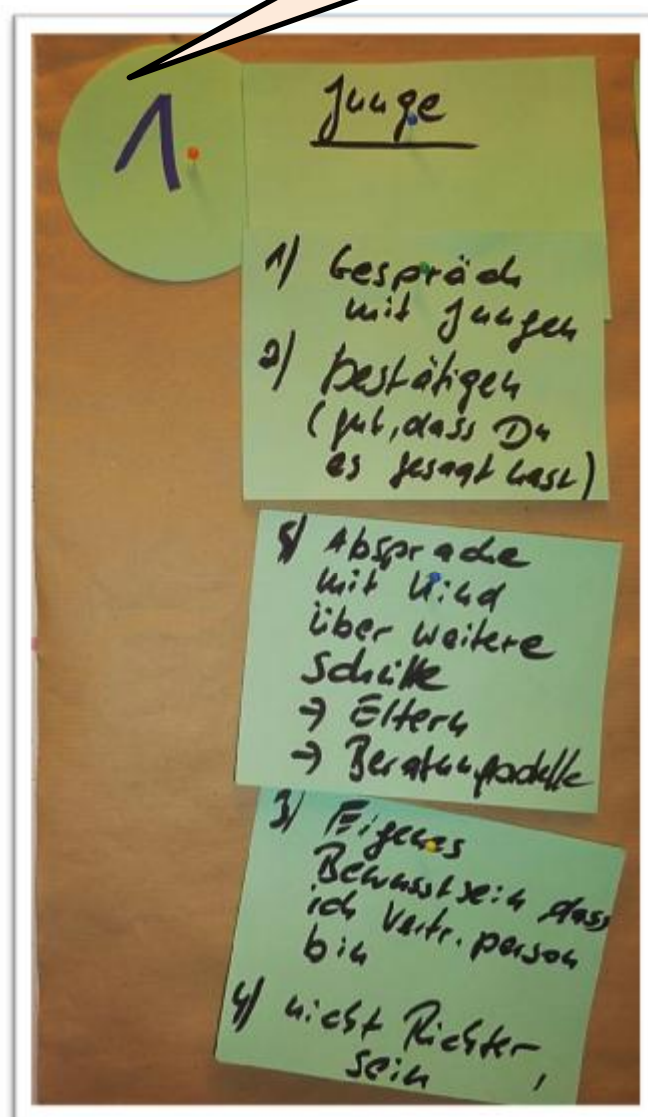 1.
Junge
1) Gespräch
mit Jungen
2) bestätigen
(gut, dass Du
es gesagt hast)
5) Absprache
mit Kind
über weitere
Schritte
→ Eltern
→ Beratungsstelle
3) Eigenes
Bewusstsein dass
ich Vertr. person
bin
4) nicht Richter
sein